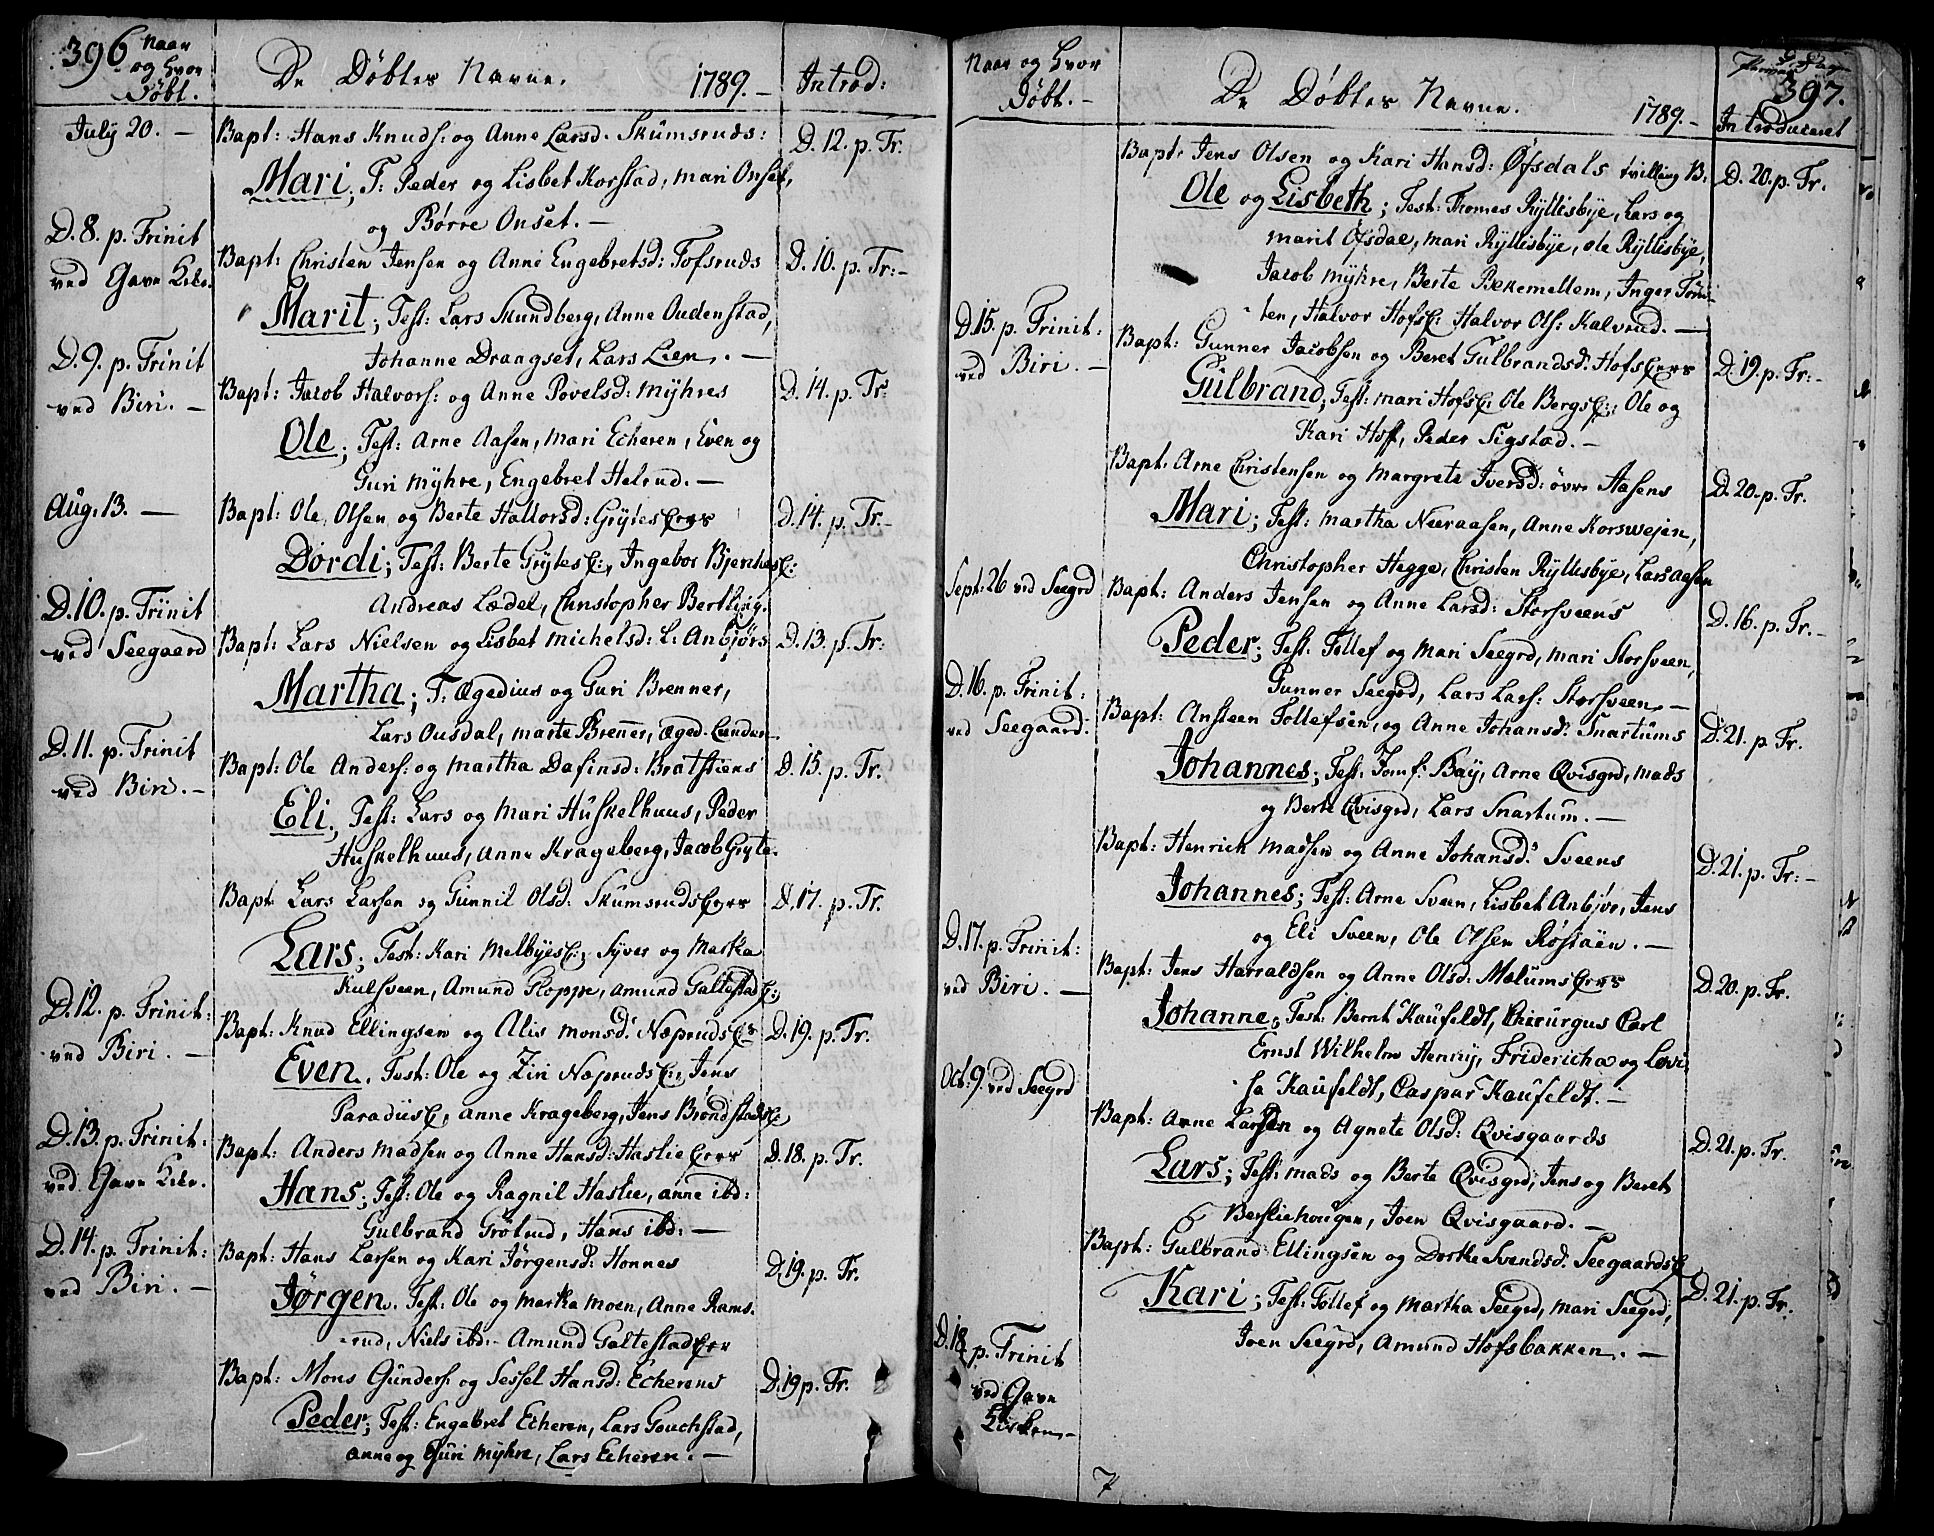 396 Naar og hvor Døbt.
De Døbtes Navne. 1789. Introd:
July 20. — Bapt: Hans Knuds: og Anne Larsd: Skumsruds: D. 12. p. Tr.
Mari; T: Peder og Lisbet Korstad, mari Onset,
og Børre Onset. —
D. 8. p. Trinit
ved Gave Kirk. Bapt: Christen Jensen og Anne Engebretsd: Tofsruds D. 10. p. Tr: -
Marit; Test: Lars Skundberg, Anne Oudenstad,
Johanne Draagset, Lars Lien. —
D. 9. p. Trinit
ved Biri. — Bapt: Jacob Halvors: og Anne Povelsd: Myhres D. 14. p. Tr:
Ole; Test: Arne Aasen, Mari Echeren, Even og
Guri Myhre, Engebret Helrud. —
Aug. 13. — Bapt: Ole Olsen og Berte Hallorsd: Grytes D. 14. p. Tr. -
Dordi; Test: Berte Grytes, Ingebor
Andreas Lædel, Christopher Bertling.
D. 10. p. Trinit
ved Seegaard Bapt: Lars Nielsen og Lisbet Michelsd: L: Anbjørs D. 13. p. Tr:
Martha; T: Ægedius og Guri Brenner,
Lars Ousdal, marte Brenner, Æged. Lunden.
D. 11. p. Trinit
ved Biri. — Bapt: Ole Anders: og Martha Dafinsd: Bratstiens D. 15. p. Tr.
Eli; Test: Lars og Mari Huskelhuus, Peder
Huskelhuus, Anne Krageberg, Jacob Gryte.
Bapt: Lars Larsen og Gunnil Olsd: Skumsruds D. 17. p. Tr.
Lars; Test: Kari Melbyes, Syver og Martha
Kulsveen, Amund Gloppe, Amund Galtestad
D. 12. p. Trinit:
ved Biri. — Bapt: Knud Ellingsen og Alis Monsd: Næpruds D. 19. p. Tr.
Even. Test: Ole og Ziri Næpruds, Jens
Paradiis, Anne Krageberg, Jens Brøndstads
D. 13. p. Trinit:
ved Gave Kirk. Bapt: Anders Madsen og Anne Hansd: Haslie D. 18. p. Tr.
Hans; Test: Ole og Ragnil Haslie, anne ibd:
Gulbrand Grøtrud, Hans ibd: —
D. 14. p. Trinit:
ved Biri. — Bapt: Hans Larsen og Kari Jørgensd: Honnes D. 19. p. Tr.
Jørgen. Test: Ole og Martha Moen, Anne Rams-
rud, Niels ibd: - Amund Galtestad
Bapt: Mons Gunders: og Sessel Hansd: Echerens D. 19 p. Tr.
Peder; Test: Engebret Echeren, Lars Gouchstad,
anne og Guri Myhre, Lars Echeren. —
Naar og hvor Døbt. —
De Døbtes Navne. 1789. — 397. Introduceret
Bapt: Jens Olsen og Kari Hansd: Øfsdals tvilling B. D. 20. p. Tr.
Ole og Lisbeth; Test: Thomes Ryllisbye, Lars og
Marit Øfsdal, mari Ryllisbye, Ole Ryllisbye,
Jacob Myhre, Berte Bekemellem, Inger
ten, Halvor Halvor Ols: Kalvrud. —
D. 15. p. Trinit:
ved Biri. — Bapt: Gunner Jacobsen og Beret Gulbrandsd: Hofs D. 19. p. Tr: -
Gulbrand; Test: mari Hofs Ole Bergs: Ole og
Kari Hoff, Peder Sigstad. —
Bapt: Arne Christensen og Margrete Iversd: øvre Aasens D. 20. p. Tr.
Mari; Test: Martha Neeraasen, Anne Korswejen,
Christopher Hegge, Christen Ryllisbye, Lars Aasen
Sept: 26 ved Seegrd Bapt: Anders Jensen og Anne Larsd: Storsveens D. 16. p. Tr. -
Peder; Test. Tollef og Mari Seegrd, mari Storsveen,
Gunner Seegrd, Lars Lars: Storsveen. —
D. 16. p. Trinit:
ved Seegaard: Bapt: Ansteen Tollefsen, og Anne Johansd: Snartums D. 21. p Tr.
Johannes; Test: Jomf: Bay, Arne Qvisgrd, Mads
og Berte Qvisgrd, Lars Snartum. —
Bapt: Henrich Madsen og Anne Johansd: Sveens D. 21. p. Tr: -
Johannes; Test: Arne Sveen, Lisbet Anbjør, Jens
og Eli Sveen, Ole Olsen Røstøen. —
D. 17. p. Trinit:
ved Biri. — Bapt: Jens Harraldsen og Anne Olsd: Mælums D. 20. p. Tr.
Johanne; Test: Bernt Kaufeldt, Chirurgus Carl
Ernst Wilhelm Henry, Fridericha og Lovi-
sa Kaufeldt, Caspar Kaufeldt. —
Oct: 9. ved Seegrd Bapt: Arne Larsen og Agnete Olsd: Qvisgaards D. 21. p. Tr.
Lars; Test: mads og Berte Qvisgrd, Jens og Beret
Berliehougen, Joen Qvisgaard. —
Bapt: Gulbrand Ellingsen og Dorthe Svendsd: Seegaards D. 21. p. Tr.
Kari; Test: Tollef og Martha Seegrd, Mari Seegrd,
Joen Seegrd, Amund Hofsbakken. —
D. 18. p. Trinit
ved Gave
Kirken. -